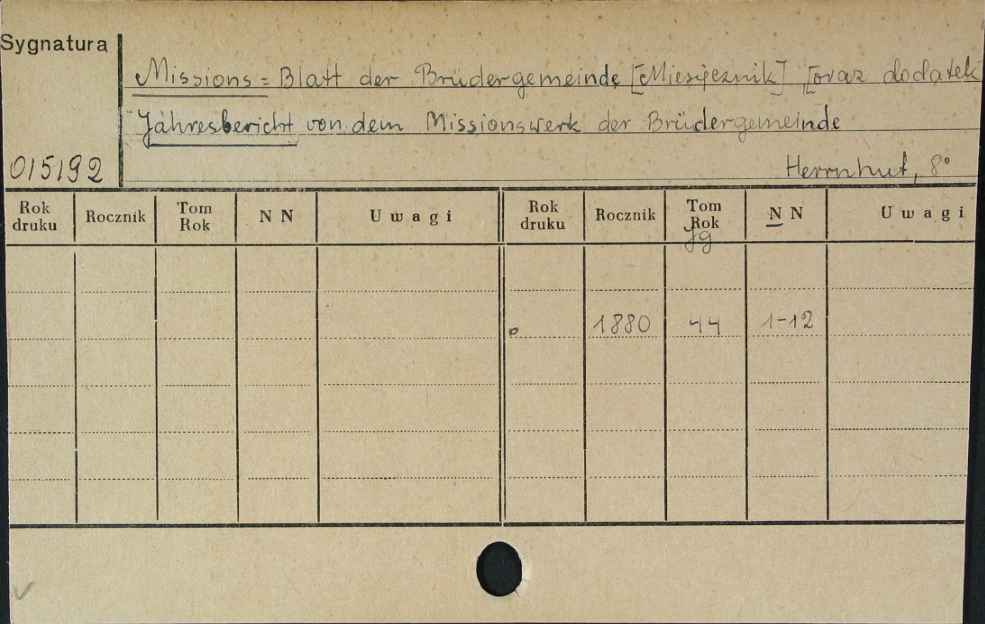 Sygnatura
Missions = Blatt der Brüdergemeinde [Miesięcznik] [oraz dodatek
Jahresbericht von dem Missionswerk der Brüdergemeinde
015192
Herrnhut, 8°
Rok druku Rocznik Tom Rok N N Uwagi Rok druku Rocznik Tom Rok N N Uwagi
Jg
1880 44 1-12